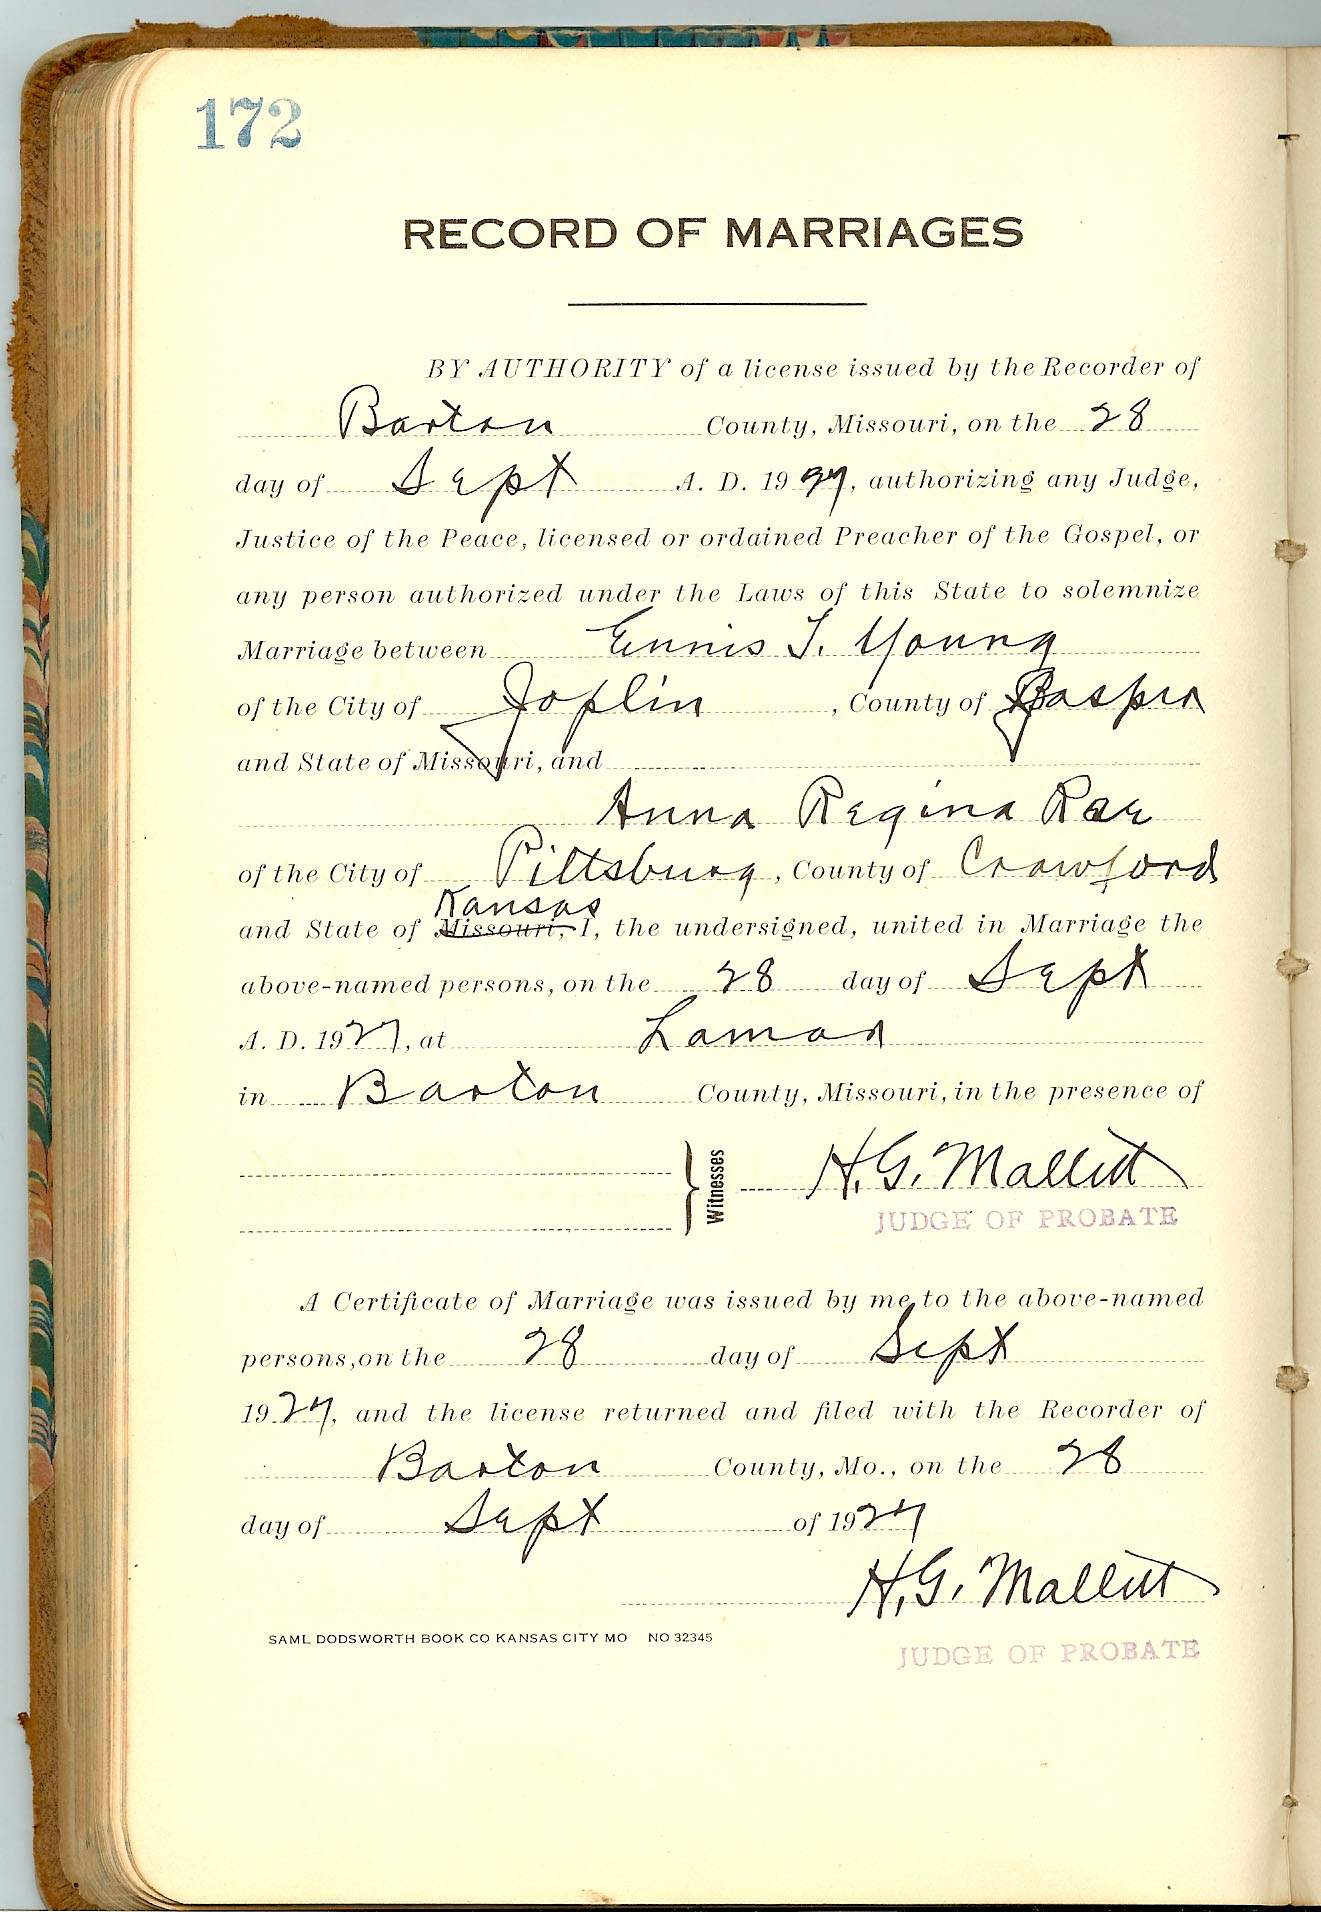 172
RECORD OF MARRIAGES
BY AUTHORITY of a license issued by the Recorder of
Barton County, Missouri, on the 28
day of Sept A. D. 1927, authorizing any Judge,
Justice of the Peace, licensed or ordained Preacher of the Gospel, or
any person authorized under the Laws of this State to solemnize
Marriage between Ennis T. Young
of the City of Joplin, County of Jasper
and State of Missouri, and
Anna Regina Rae
of the City of Pittsburg, County of Crawford
Kansas
and State of Missouri, I, the undersigned, united in Marriage the
above-named persons, on the 28 day of Sept
A. D. 1927, at Lamar
in Barton County, Missouri, in the presence of
Witnesses H. G. Mallett
JUDGE OF PROBATE
A Certificate of Marriage was issued by me to the above-named
persons, on the 28 day of Sept
1927, and the license returned and filed with the Recorder of
Barton County, Mo., on the 28
day of Sept of 1927
H. G. Mallett
SAML DODSWORTH BOOK CO KANSAS CITY MO NO 32345
JUDGE OF PROBATE